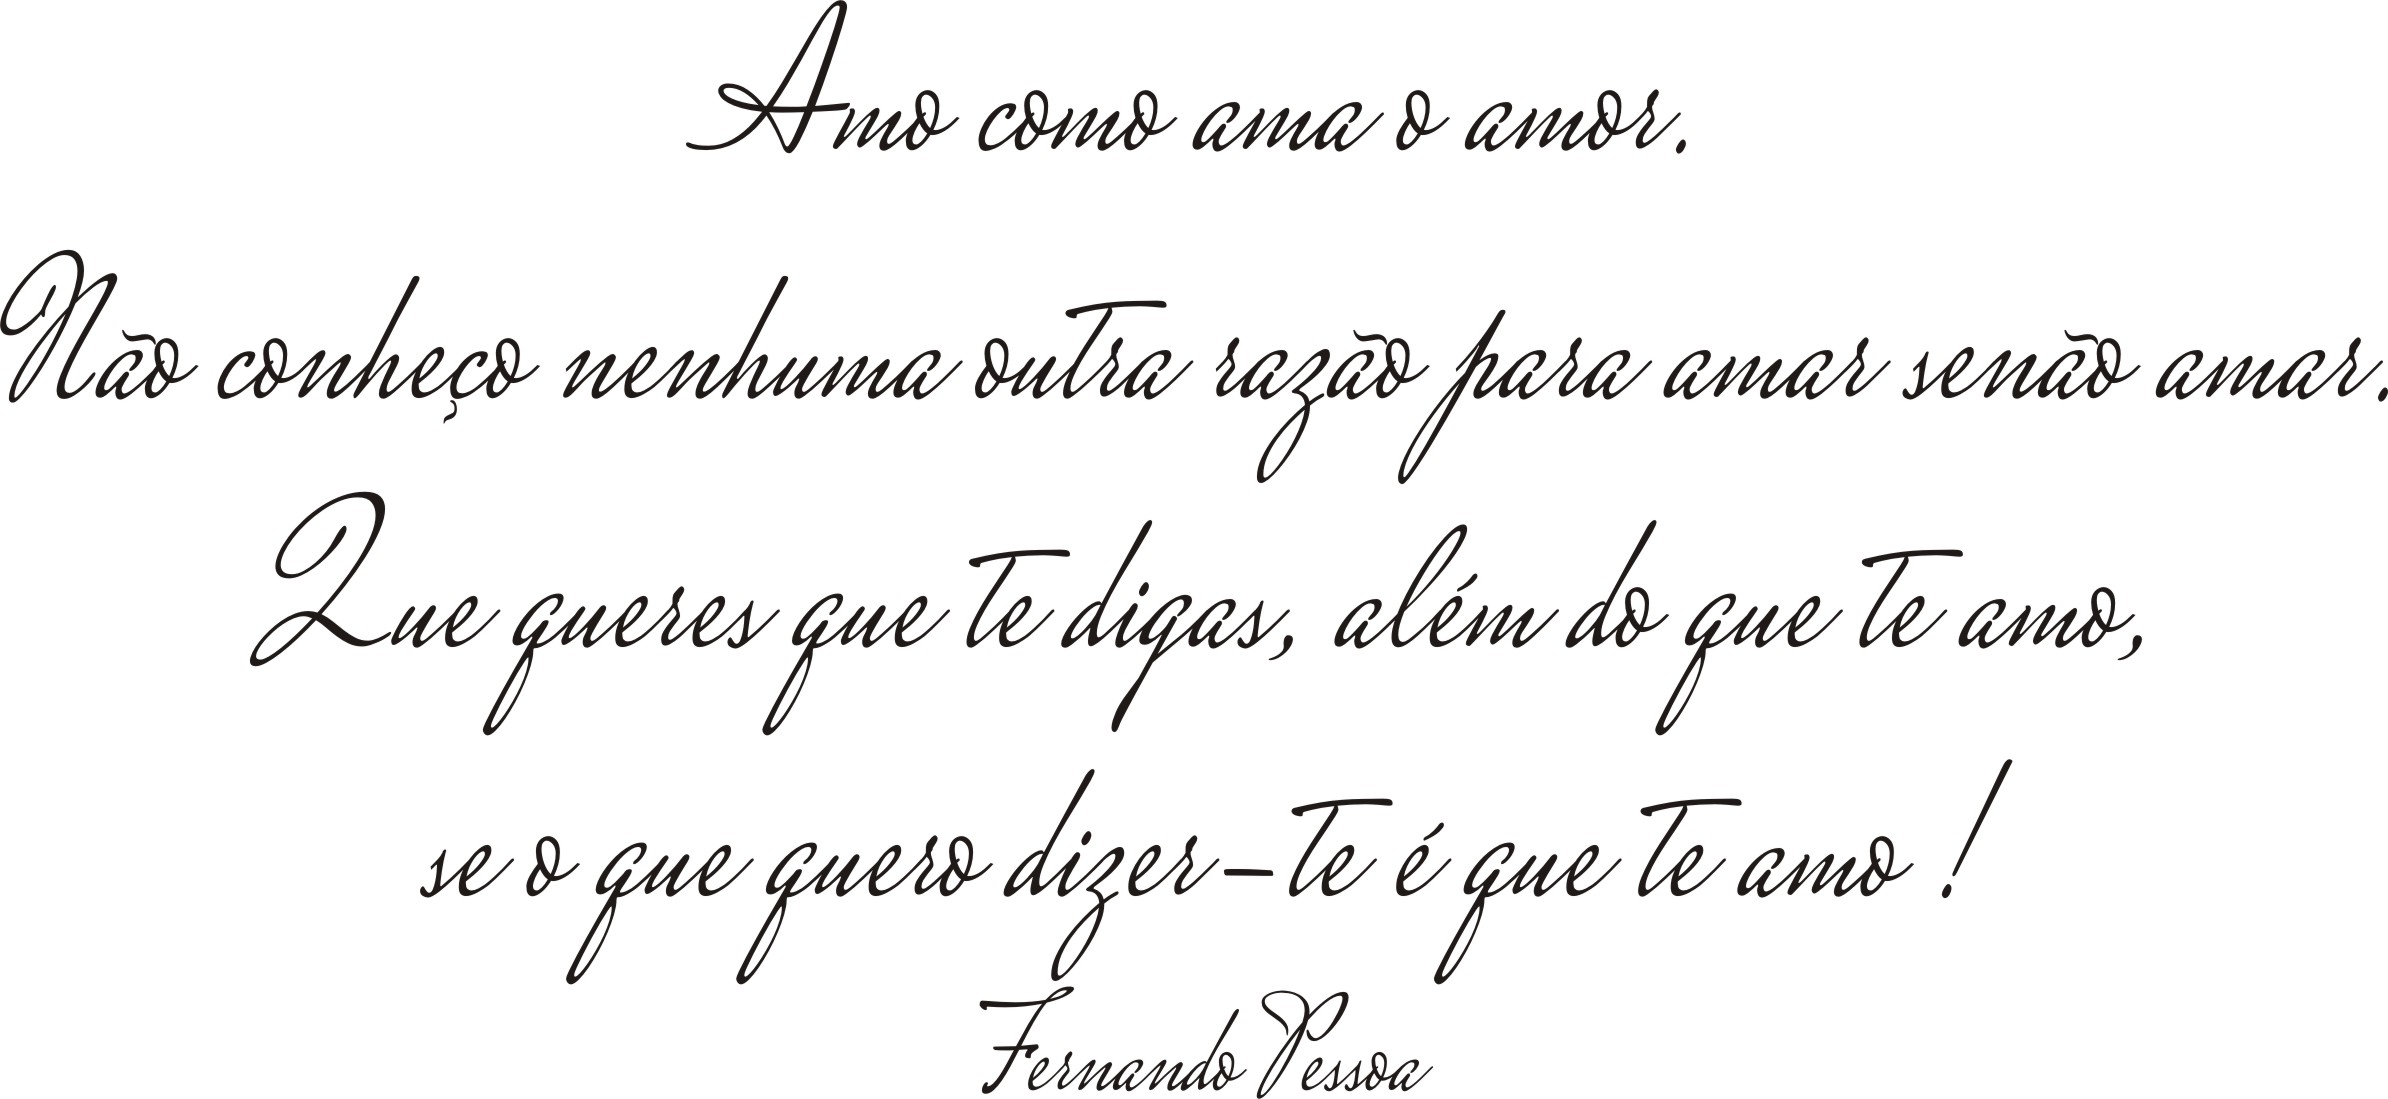 Amo como ama o amor.
Não conheço nenhuma outra razão para amar senão amar.
Que queres que te digas, além do que te amo,
se o que quero dizer-te é que te amo!
Fernando Pessoa